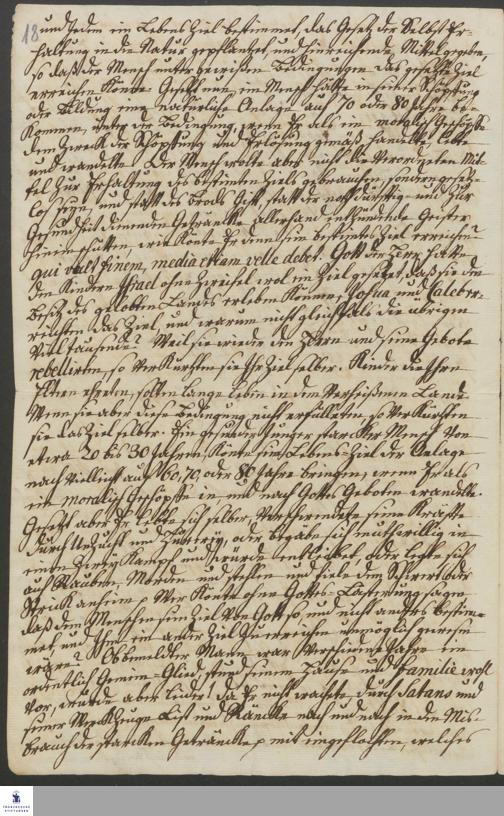 18 und Jedem ein Lebens Ziel bestimmet, das Gesetz der Selbst Er-
haltung in die Natur gepflantzet, und hinreichende Mittel gegeben,
so daß der Mensch unter gewissen Bedingungen das gesetzte Ziel
erreichen konte. Gesetzt nun, ein Mensch hätte in seiner Schöpfung
oder Bildung eine natürliche Anlage auf 70 oder 80 Jahre be-
kommen, unter der Bedingung, wenn Er als ein moralisch Geschöpffe
dem Zweck der Schöpffung und Erlösung gemäß handelte, lebte
und wandelte. Der Mensch wolte aber nicht die verordneten Mit-
tel zur Erhaltung des bestimten Ziels gebrauchen, sondern gesetz-
los seyn, und statt des Brods Gift, statt der nothdürftig- und zur
Gesundheit dienenden Geträncke allerhand entzündende Geister
hinein schütten, wie konte Er denn sein bestimtes Ziel erreichen?
qui vult finem, media etiam velle debet. Gott der Herr hatte
den Kindern Israel ohne Zweifel wol ein Ziel gesetzet, daß sie den
Besitz des gelobten Landes erleben können, Josua und Caleb er-
reichten das Ziel, und warum nicht gleichfals die übrigen
viel tausende? Weil sie wieder den Herrn und seine Gebote
rebellirten, so verkürtzten sie Ihr Ziel selber. Kinder die Ihre
Eltern ehreten, solten lange leben in dem verheißenen Lande
Wenn sie aber diese Bedingung nicht erfülleten, so verkürtzten
sie das Ziel selber. Ein gesunder Junger starcker Mensch von
etwa 20 bis 30 Jahren, konte sein Lebens-Ziel der Anlage
nach vielleicht auf 60, 70, oder 80 Jahre bringen, wenn Er als
ein moralisch Geschöpffe in und nach Gottes Geboten wandelte.
Gesetzt aber Er lebte sich selber, verschwendete seine Kräffte
durch Unzucht und Hurerey, oder begäbe sich muthwillig in
einen Zwey Kampf und würde entleibet, oder legte sich
auf Rauben, Morden und stehlen und fiele dem Schwert oder
Strick anheim p Wer könte ohne Gottes-Lästerung sagen
daß dem Menschen sein Ziel von Gott so und nicht anders bestim-
met, und Ihm ein ander Ziel zu erreichen unmöglich gewesen
wäre? Obbemeldter Mann war verschiedene Jahre ein
ordentlich Gemein-Glied, stund seinem Hause und Familie wohl
vor, wurde aber leider! da Er nicht wachte, durch Satans und
seiner Werkzeuge List und Räncke nach und nach in den Mis-
brauch der starcken Geträncke p mit eingeflochten, welches
FRANCKESCHE
STIFTUNGEN